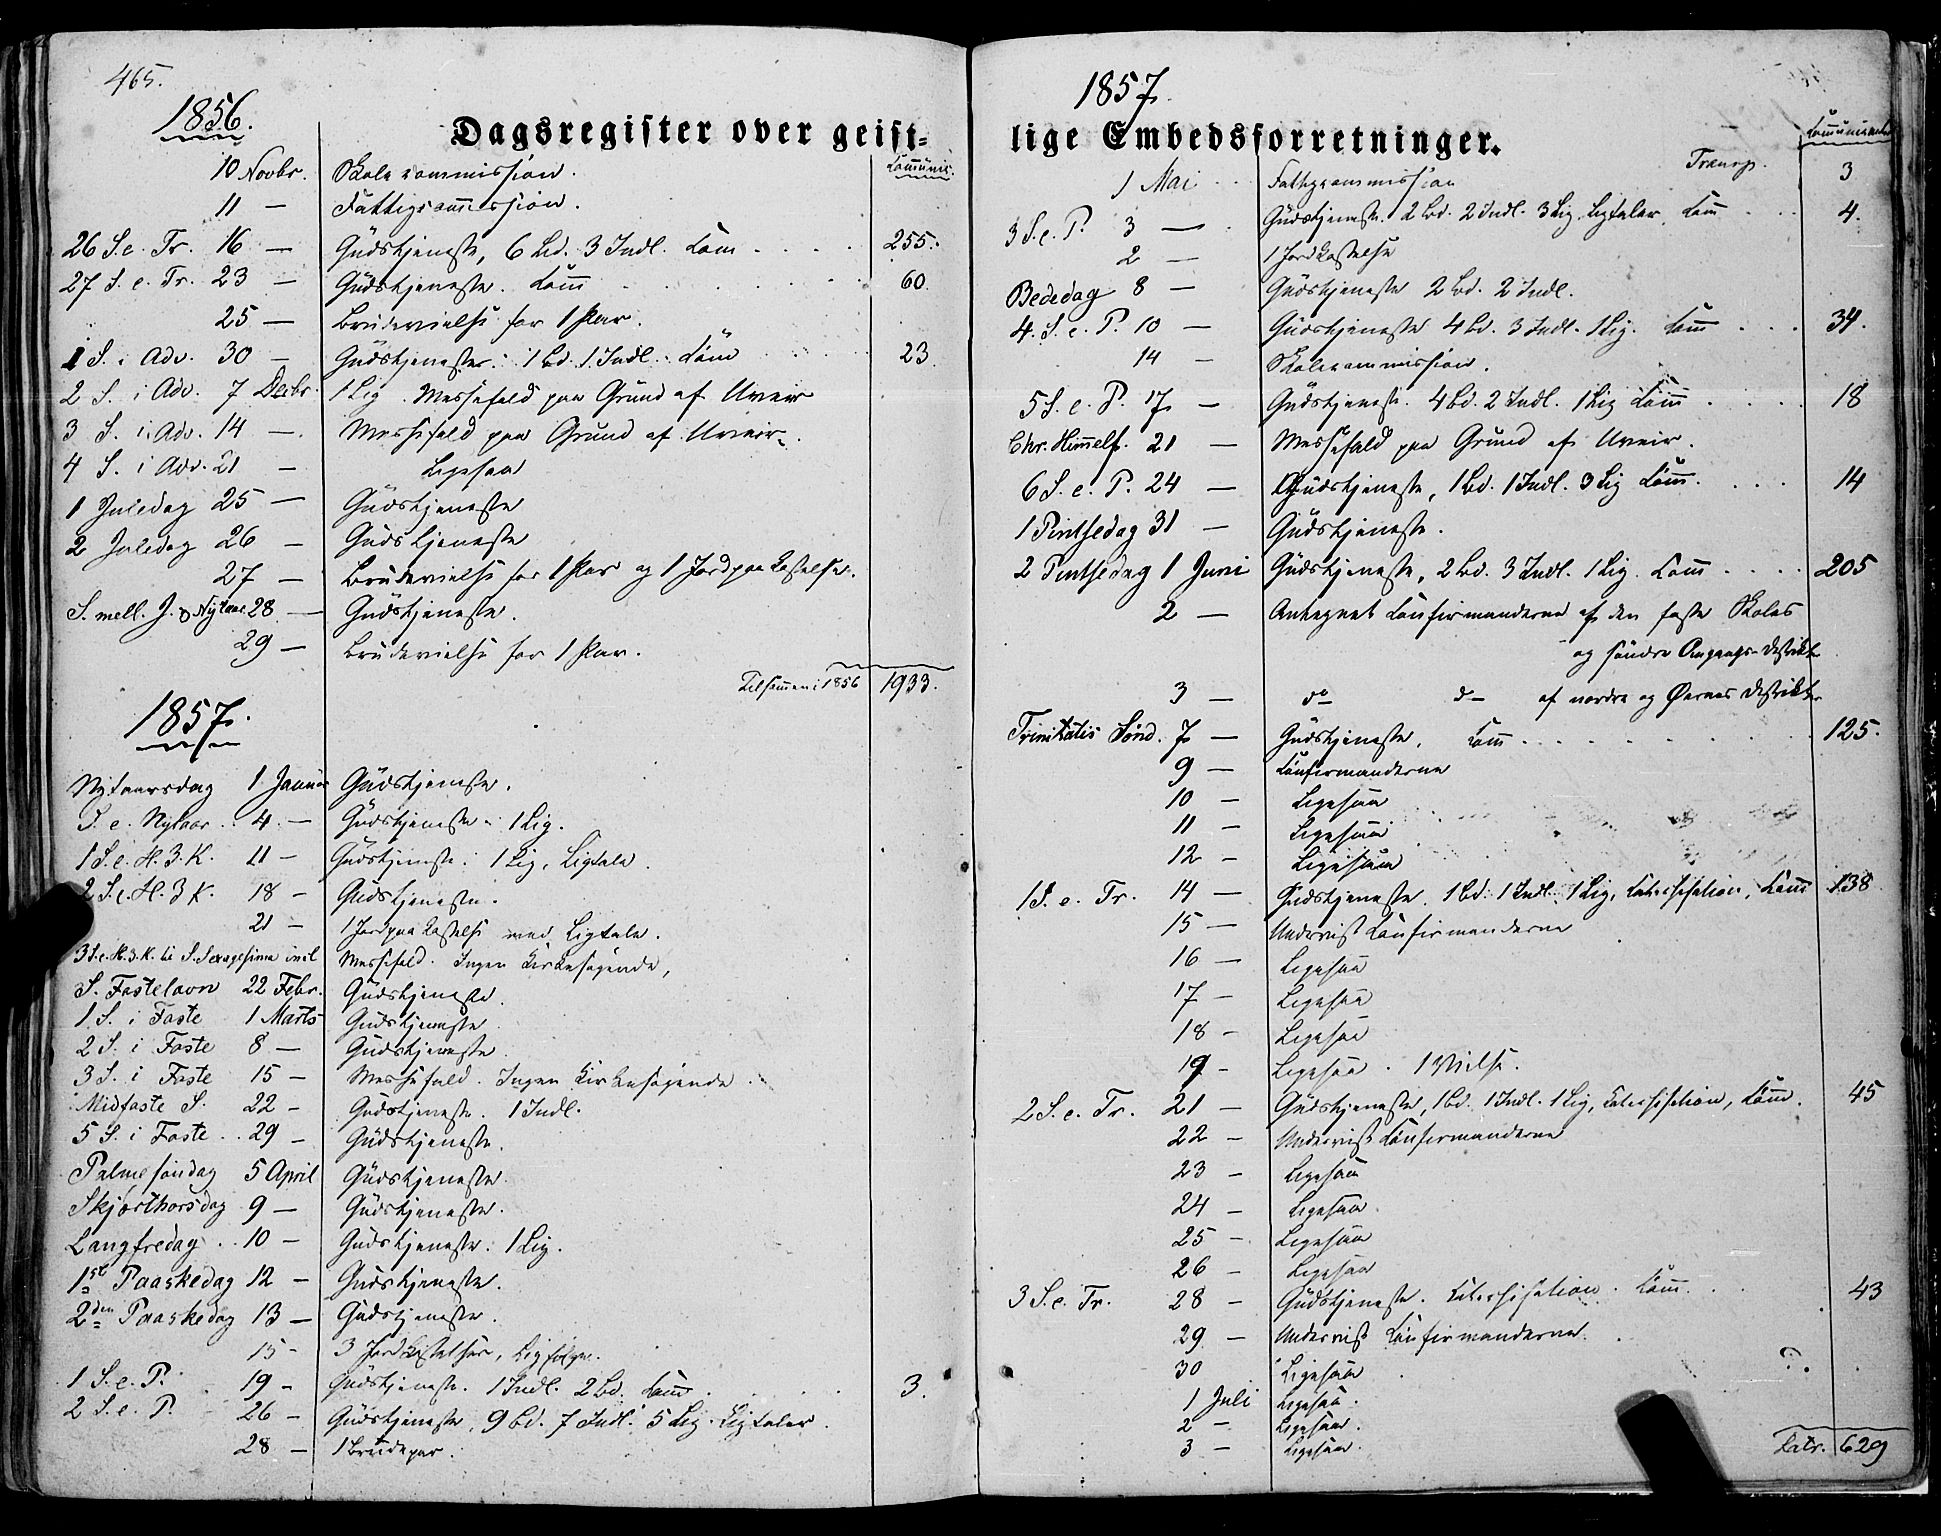 465.
1856.
Dagsregister over geist-
Communic.
10 Novbr. Skolecommission.
11 — Fattigcommission.
26 S. e. Tr. 16 — Gudstjeneste, 6 Bd. 3 Indl. Com 255.
27 S. e. Tr. 23 — Gudstjeneste. Comm 60.
25 — Brudevielse for 1 Par.
1 S. i Adv. 30 — Gudstjeneste. 1 Bd. 1 Indl. Com 23
2 S. i Adv. 7 Decbr. 1 Lig. Messefald paa Grund af Uveir
3 S. i Adv. 14 — Messefald paa Grund af Uveir.
4 S. i Adv. 21 — Ligesaa
1 Juledag 25 — Gudstjeneste
2 Juledag 26 — Gudstjeneste
27 — Brudevielse for 1 Par og 1 Jordpaakastelse.
S. mell. J. & Nytaar 28 — Gudstjeneste.
29 — Brudevielse for 1 Par.
Tilsammen i 1856 1933.
1857.
Nytaarsdag 1 Januar Gudstjeneste.
S. e. Nytaar 4 — Gudstjeneste. 1 Lig.
1 S. e. H. 3. K. 11 — Gudstjeneste. 1 Lig, Ligtale.
2 S. e. H. 3 K. 18 — Gudstjeneste.
21 — 1 Jordpaakastelse med Ligtale.
3 S. e. H. 3. K. til S. Sexagesima incl Messefald. Ingen Kirkesøgende,
S. Fastelavn 22 Febr. Gudstjeneste.
1 S. i Faste 1 Marts Gudstjeneste.
2 S. i Faste 8 — Gudstjeneste.
3 S. i Faste 15 — Messefald. Ingen Kirkesøgende.
Midfaste S. 22 — Gudstjeneste. 1 Indl.
5 S. i Faste 29 — Gudstjeneste.
Palmesøndag 5 April Gudstjeneste.
Skjærthorsdag 9 — Gudstjeneste.
Langfredag 10 — Gudstjeneste. 1 Lig.
1ste Paaskedag 12 — Gudstjeneste.
2den Paaskedag 13 — Gudstjeneste.
15 — 3 Jordkastelser, Ligfølge.
1 S. e. P. 19 — Gudstjeneste. 1 Indl. 2 Bd. Comm 3.
2 S. e. P. 26 — Gudstjeneste, 9 Bd. 7 Indl. 5 Lig. Ligtaler.
28 — 1 Brudepar.
1857.
lige Embedsforretninger.
Communicanter
Transp. 3
1 Mai Fattigcommission
3 S. e. P. 3 — Gudstjeneste. 2 Bd. 2 Indl. 3 Lig. Ligtaler. Com 4.
2 — 1 Jordkastelse
Bededag 8 — Gudstjeneste 2 Bd. 2 Indl.
4. S. e. P. 10 — Gudstjeneste 4 Bd. 3 Indl. 1 Lig. Comm 34.
14 — Skolecommission.
5 S. e. P. 17 — Gudstjeneste. 4 Bd. 2 Indl. 1 Lig Comm 18
Chr. Himmelf. 21 — Messefald paa Grund af Uveir.
6 S. e. P. 24 — Gudstjeneste, 1 Bd. 1 Indl. 3 Lig Comm. 14
1 Pintsedag 31 — Gudstjeneste.
2 Pintsedag 1 Juni Gudstjeneste, 2 Bd. 3 Indl. 1 Lig. Com 205
2 — Antegnet Confirmanderne af den faste Skoles
og søndre Omgangs-Distrikt
3 — do do af nordre og Øernes Distrikter
Trinitatis Sønd. 7 — Gudstjeneste, Com 125.
9 — Confirmanderne
10 — Ligesaa
11 — Ligesaa
12 — Ligesaa
1 S. e. Tr. 14 — Gudstjeneste. 1 Bd. 1 Indl. 1 Lig, Catechisation, Comm 138
15 — Underviist Confirmanderne
16 — Ligesaa
17 — Ligesaa
18 — Ligesaa
19 — Ligesaa. 1 Vielse.
2 S. e. Tr. 21 — Gudstjeneste, 1 Bd. 1 Indl. 1 Lig, Catechisation, Comm. 45
22 — Underviist Confirmanderne
23 — Ligesaa
24 — Ligesaa
25 — Ligesaa
26 — Ligesaa
3 S. e. Tr. 28 — Gudstjeneste. Catechisation. Comm. 43
29 — Underviist Confirmanderne.
30 Ligesaa
1 Juli Ligesaa.
2 — Ligesaa.
3 — Ligesaa.
Latr. 629